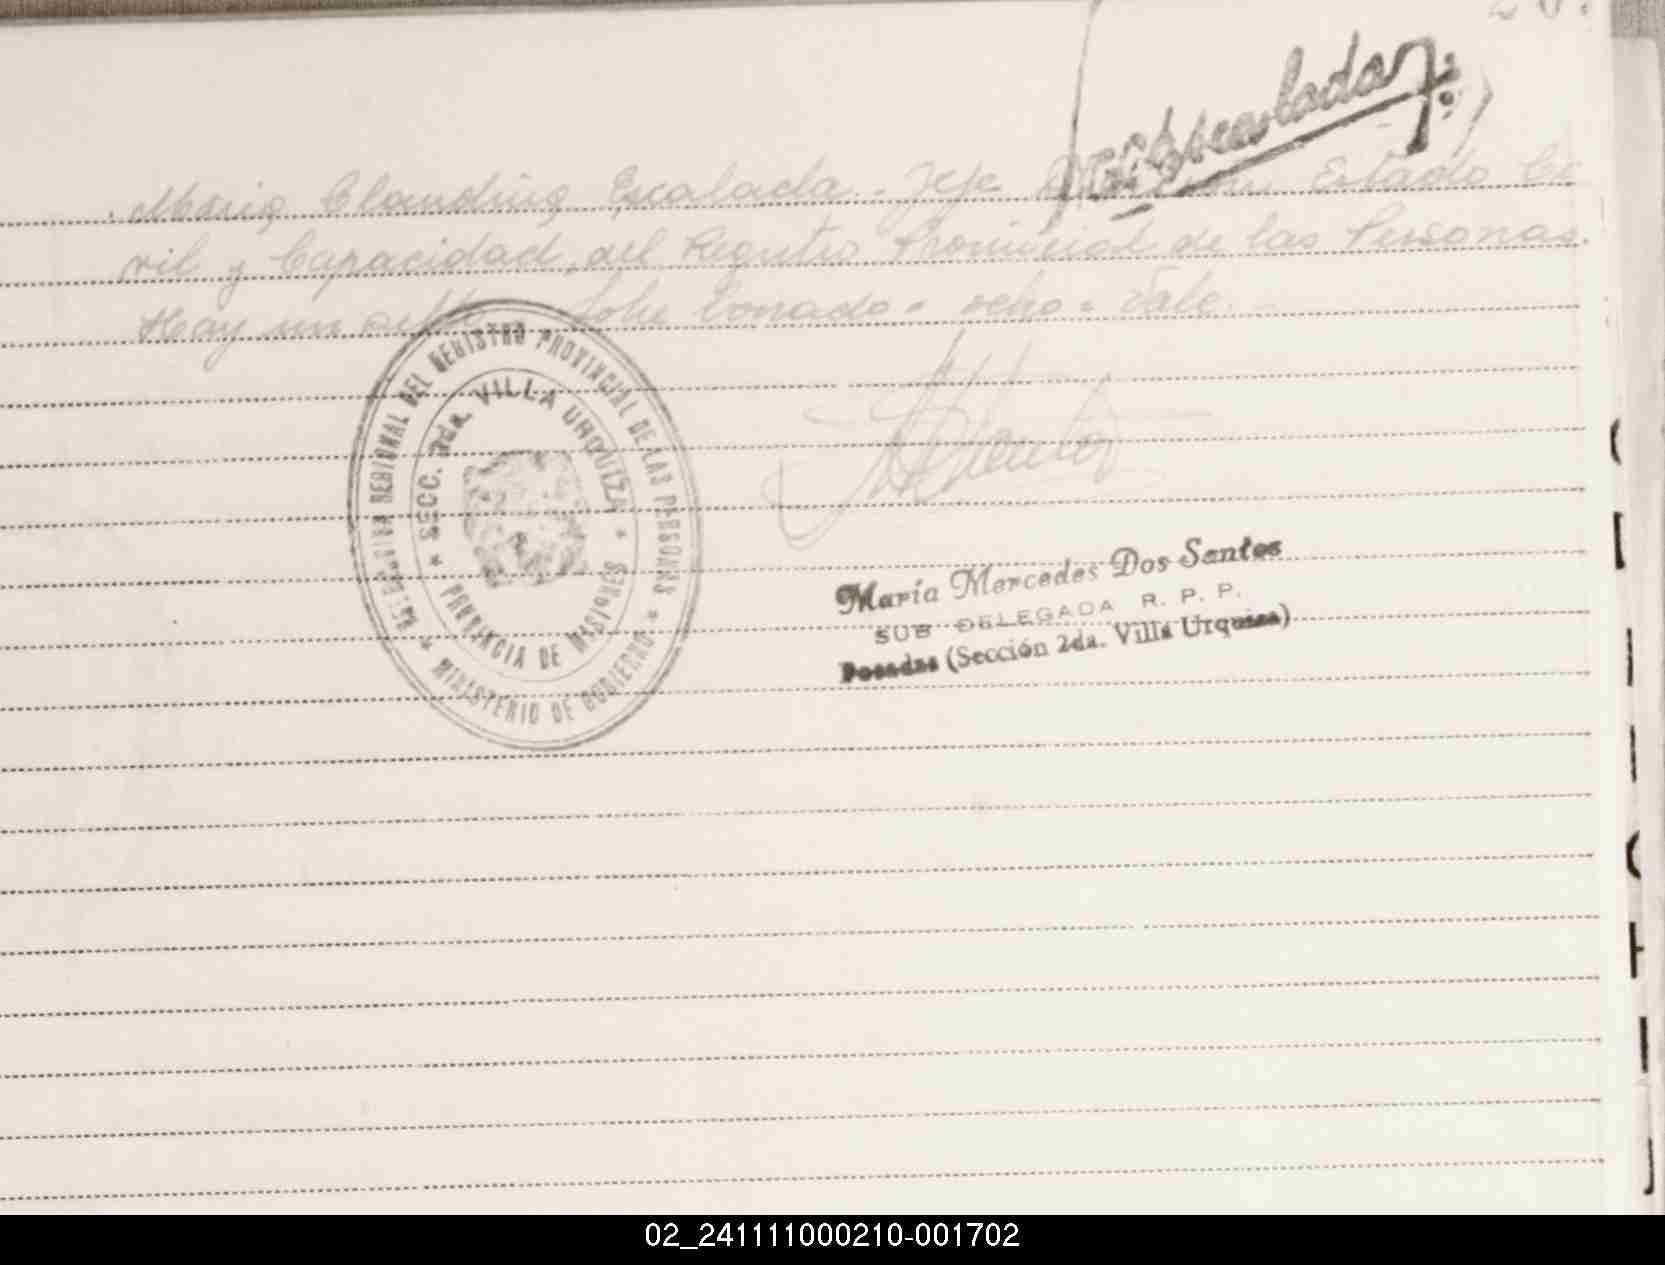 Escalada
María Claudina Escalada. Jefe División Estado Ci
vil y Capacidad, del Registro Provincial de las Personas.
Hay un sello. Sobre borrado = ocho = Vale.
DELEGACION REGIONAL DEL REGISTRO PROVINCIAL DE LAS PERSONAS
SECC. 2da. VILLA URQUIZA
PROVINCIA DE MISIONES
MINISTERIO DE GOBIERNO
María Mercedes Dos Santos
SUB DELEGADA R. P. P.
Posadas (Sección 2da. Villa Urquiza)
02_241111000210-001702